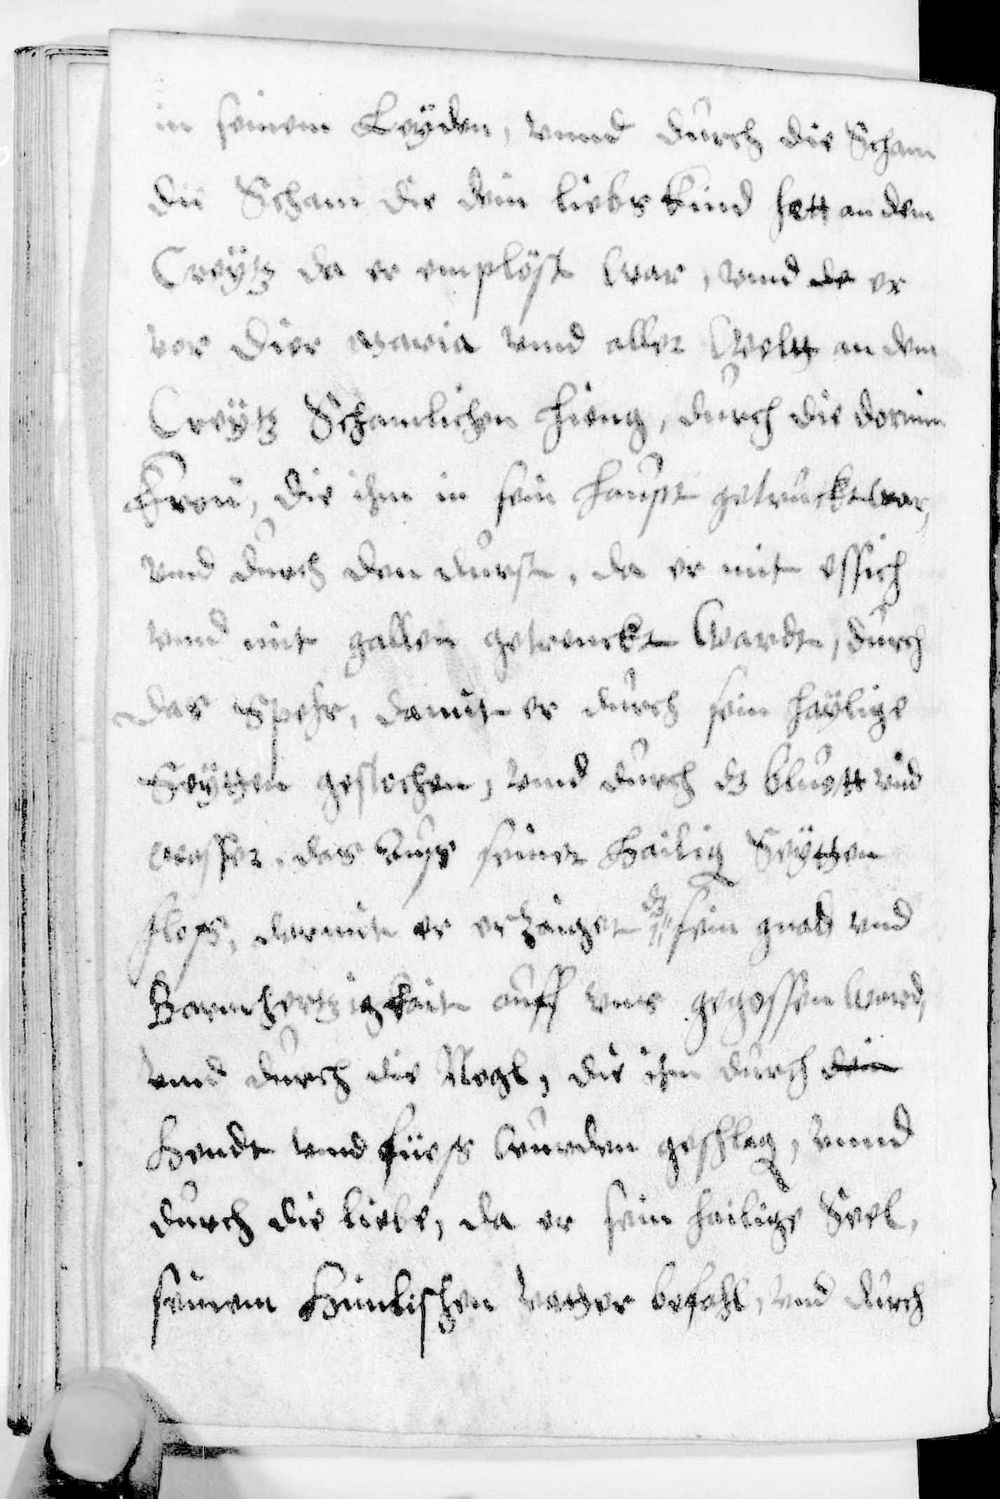 in seinem Leÿden, vnnd durch die Scham
die Scham die dein liebs kind hett an dem
Creÿtz da er emplöst war, vnnd da er
vor dier maria vnnd aller Weltt an dem
Creÿtz Schamlichen hieng, durch die dornin
Kron, die ihm in sein haupt getruckt war,
vnnd durch den durst, da er mit essich
vnnd mit gallen getrenckt wardt, durch
das Spehr, damit er durch sein haÿlige
Seÿtten gestochen, vnnd durch dz bluett vnd
wasser, das auss seiner hailig Seÿtten
floss, darmit er erzaiget dz sein gnad vnd
Barmhertzigkeit auff vns gegossen ward,
vnnd durch die Negl, die ihm durch dein
Hendt vnnd füess wurden geschlag, vnnd
durch die liebe, da er sein hailige Seel,
seinem Himlischen vatter befahl, vnd durch